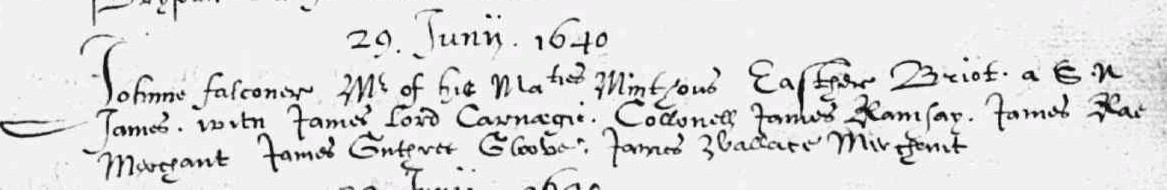 29. Junii. 1640
Johnne falconer Mr of his Maties Minthous Easther Briot. a S. N
James. witn James Lord Carnægie. Collonell James Ramsay. James Rae
Merchant James Guthree Glover. James Wallace Merchant